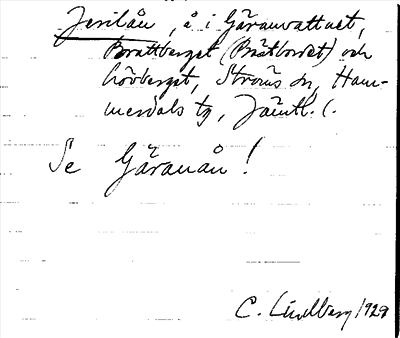 Jerilån, å i Gäranvattnet,
Brattberget (Brätbored) och
Lövberget, Ströms sn, Ham-
merdals tg, Jämtl. l.
Se Gäranån!
C. Lindberg 1929